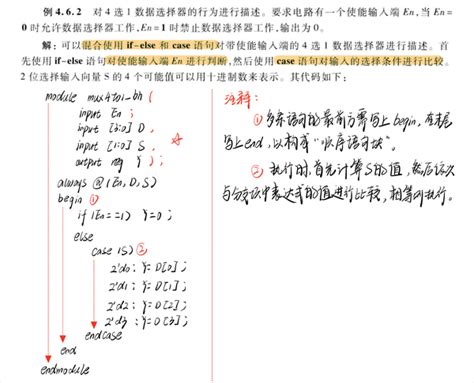 例 4.6.2 对 4 选 1 数据选择器的行为进行描述。要求电路有一个使能输入端 En,当 En=
0 时允许数据选择器工作,En=1 时禁止数据选择器工作,输出为 0。
解:可以混合使用 if-else 和 case 语句对带使能输入端的 4 选 1 数据选择器进行描述。首
先使用 if-else 语句对使能输入端 En 进行判断,然后使用 case 语句对输入的选择条件进行比较。
2 位选择输入向量 S 的 4 个可能值可以用十进制数来表示。其代码如下:
module mux4to1-bh (
input En ;
input [3:0] D ,
input [1:0] S ,
output reg Y ) ;
always @ (En, D, S)
begin ①
if (En==1) Y=0 ;
else
case (S) ②
2'd0 : Y= D[0] ;
2'd1 : Y= D[1] ;
2'd2 : Y= D[2] ;
2'd3 : Y= D[3] ;
endcase
end
endmodule
注释:
① 多条语句的最前方需写上 begin, 在末尾
写上 end, 以构成“顺序语句块”。
② 执行时,首先计算S的值,然后依次
与分支项中表达式的值进行比较,相等则执行。